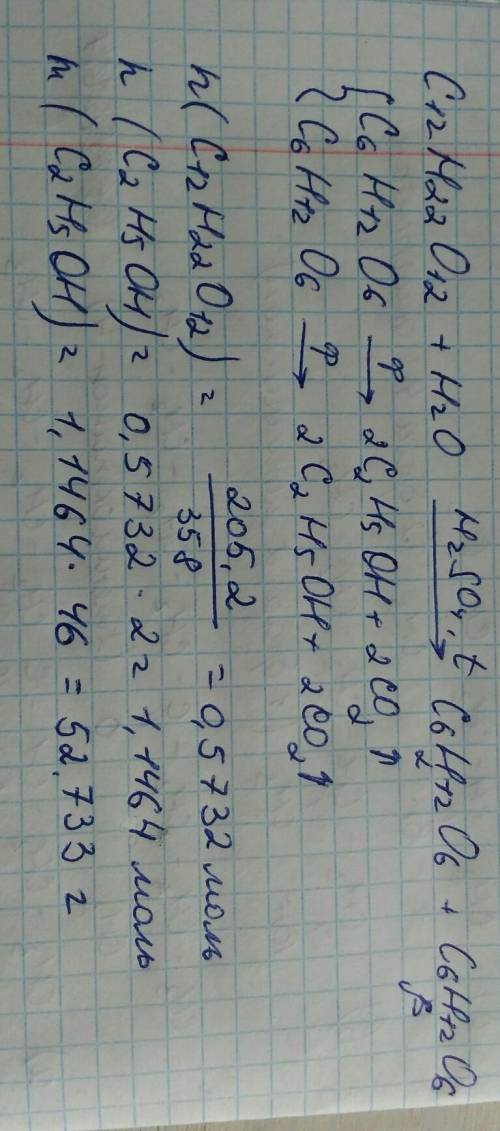 C12H22O12 + H2O H2SO4, t → C6H12O6 + C6H12O6
2 β
{ C6H12O6 φ → 2C2H5OH + 2CO2↑
{ C6H12O6 φ → 2C2H5OH + 2CO2↑
n(C12H22O12) = 205,2 / 358 = 0,5732 моль
n(C2H5OH) = 0,5732 · 2 = 1,1464 моль
m(C2H5OH) = 1,1464 · 46 = 52,733 г